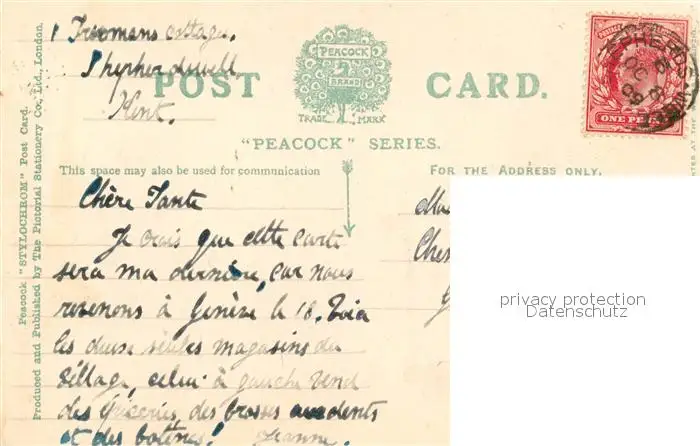 1 Freemans Cottages,
Shepherdswell
Kent.
POST CARD.
PEACOCK
BRAND
TRADE MARK
"PEACOCK" SERIES.
This space may also be used for communication
FOR THE ADDRESS ONLY.
Chère Tante
Je crois que cette carte
sera ma dernière, car nous
revenons à Genève le 18. Voici
les deux seules magasins du
village, celui à gauche vend
des épiceries, des brosses à dents
et des bottines! Jeanne.
Peacock "STYLOCHROM" Post Card.
Produced and Published by The Pictorial Stationery Co., Ltd., London.
ONE PENNY
privacy protection
Datenschutz